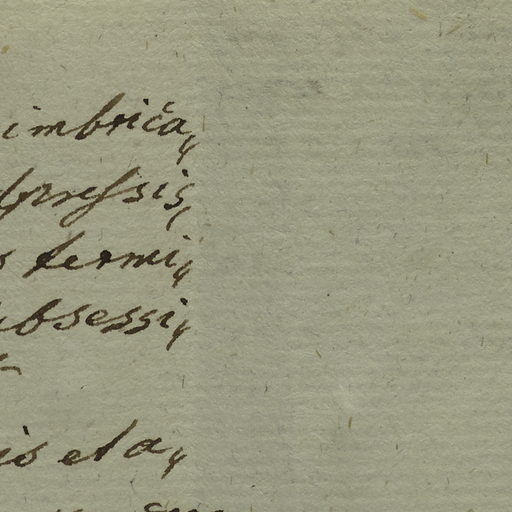 imbrica⸗
pressis,
termi⸗
ubsessi⸗
is et a⸗